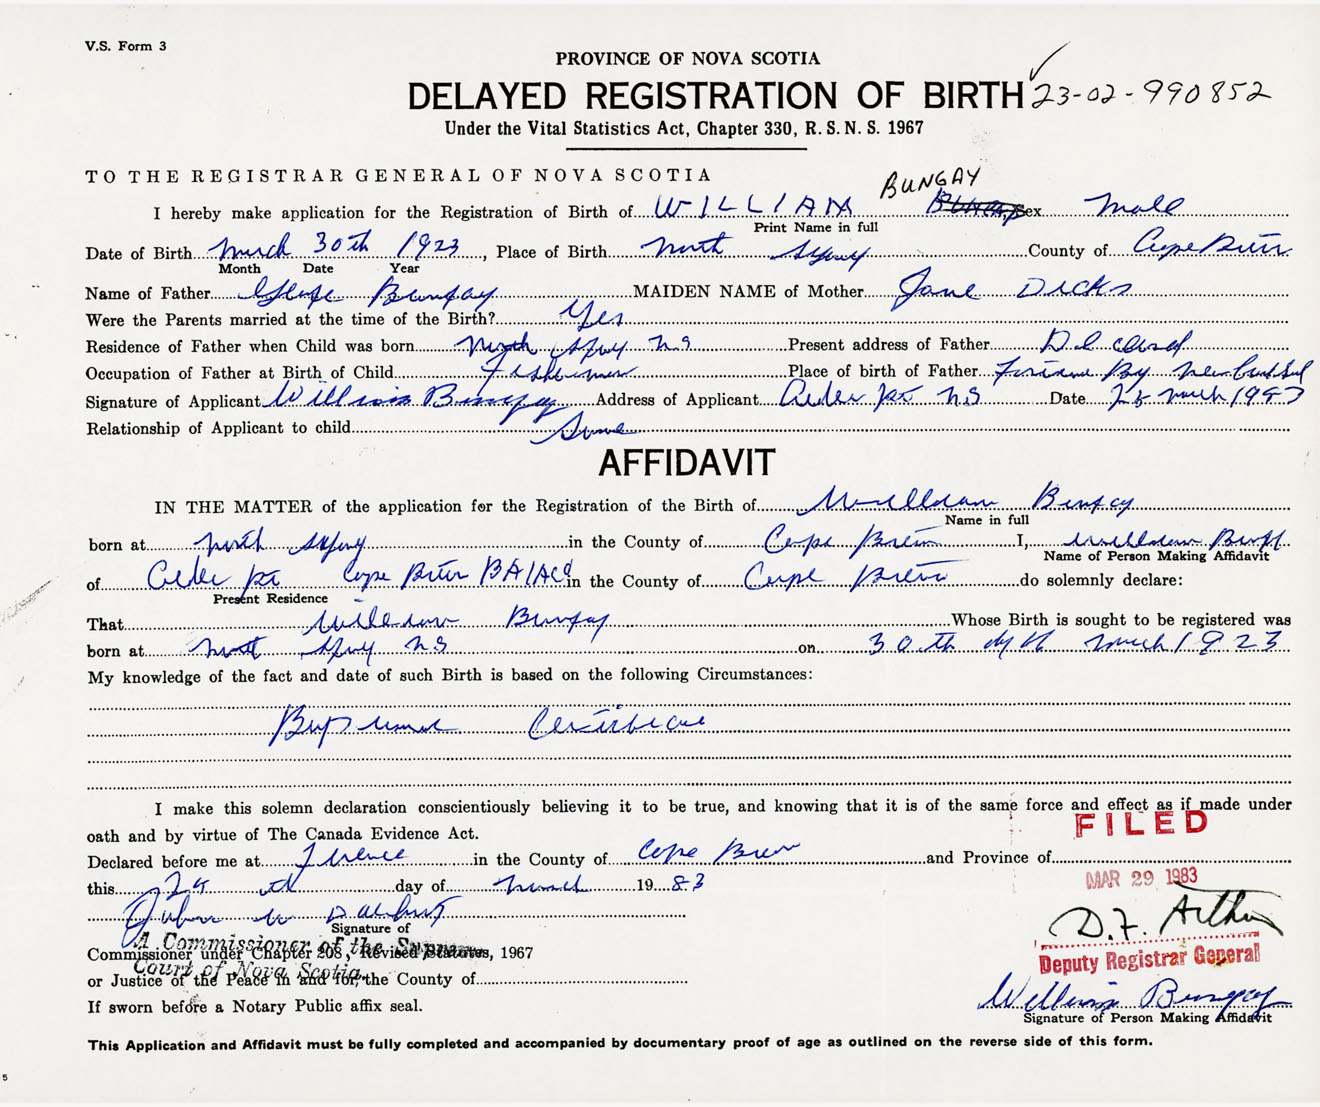 V.S. Form 3
PROVINCE OF NOVA SCOTIA
DELAYED REGISTRATION OF BIRTH 23-02-990852
Under the Vital Statistics Act, Chapter 330, R. S. N. S. 1967
TO THE REGISTRAR GENERAL OF NOVA SCOTIA
BUNGAY
I hereby make application for the Registration of Birth of WILLIAM Sex Male
Print Name in full
Date of Birth March 30th 1923, Place of Birth North Sydney County of Cape Breton
Month Date Year
Name of Father Bungay MAIDEN NAME of Mother Jane Dicks
Were the Parents married at the time of the Birth? Yes
Residence of Father when Child was born North Sydney N.S Present address of Father
Occupation of Father at Birth of Child Fisherman Place of birth of Father
Signature of Applicant William Bungay Address of Applicant Alder Pt N.S Date March 1983
Relationship of Applicant to child Same
AFFIDAVIT
IN THE MATTER of the application for the Registration of the Birth of William Bungay
Name in full
born at North Sydney in the County of Cape Breton I, William Bungay
Name of Person Making Affidavit
of Alder Pt Cape Breton in the County of Cape Breton do solemnly declare:
Present Residence
That William Bungay Whose Birth is sought to be registered was
born at North Sydney N.S on 30th March 1923
My knowledge of the fact and date of such Birth is based on the following Circumstances:
Certificate
I make this solemn declaration conscientiously believing it to be true, and knowing that it is of the same force and effect as if made under
oath and by virtue of The Canada Evidence Act.
FILED
Declared before me at Florence in the County of Cape Breton and Province of
this day of March 1983
MAR 29 1983
D.F. Arthur
Signature of
A Commissioner of the Supreme
Commissioner under Chapter 208, Revised Statutes, 1967
Court of Nova Scotia
Deputy Registrar General
or Justice of the Peace in and for, the County of
William Bungay
If sworn before a Notary Public affix seal.
Signature of Person Making Affidavit
This Application and Affidavit must be fully completed and accompanied by documentary proof of age as outlined on the reverse side of this form.
5